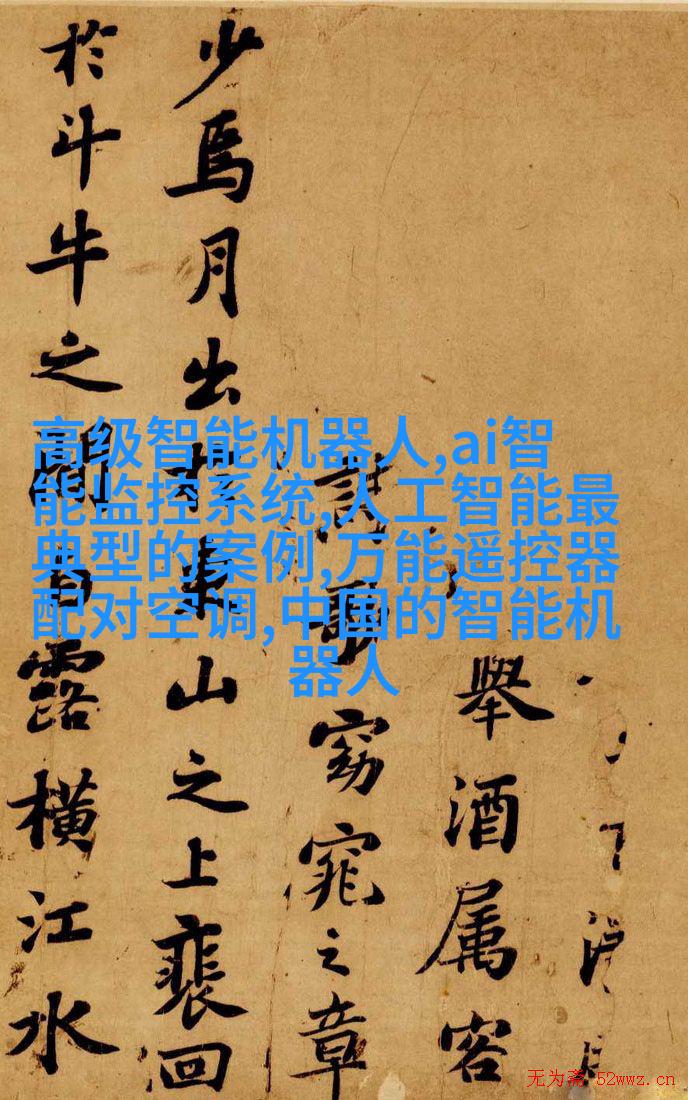 舉酒属客
詩歌窈窕之章
少焉月出於東山之上裴回
於斗牛之間白露橫江水
高级智能机器人,ai智
能监控系统,人工智能最
典型的案例,万能遥控器
配对空调,中国的智能机
器人
无为斋 52wwz.cn